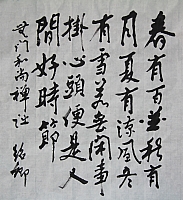 春有百花秋有
月夏有涼風冬
有雪若無閑事
掛心頭便是人
間好時節
無門和尚禪詩 銘卿